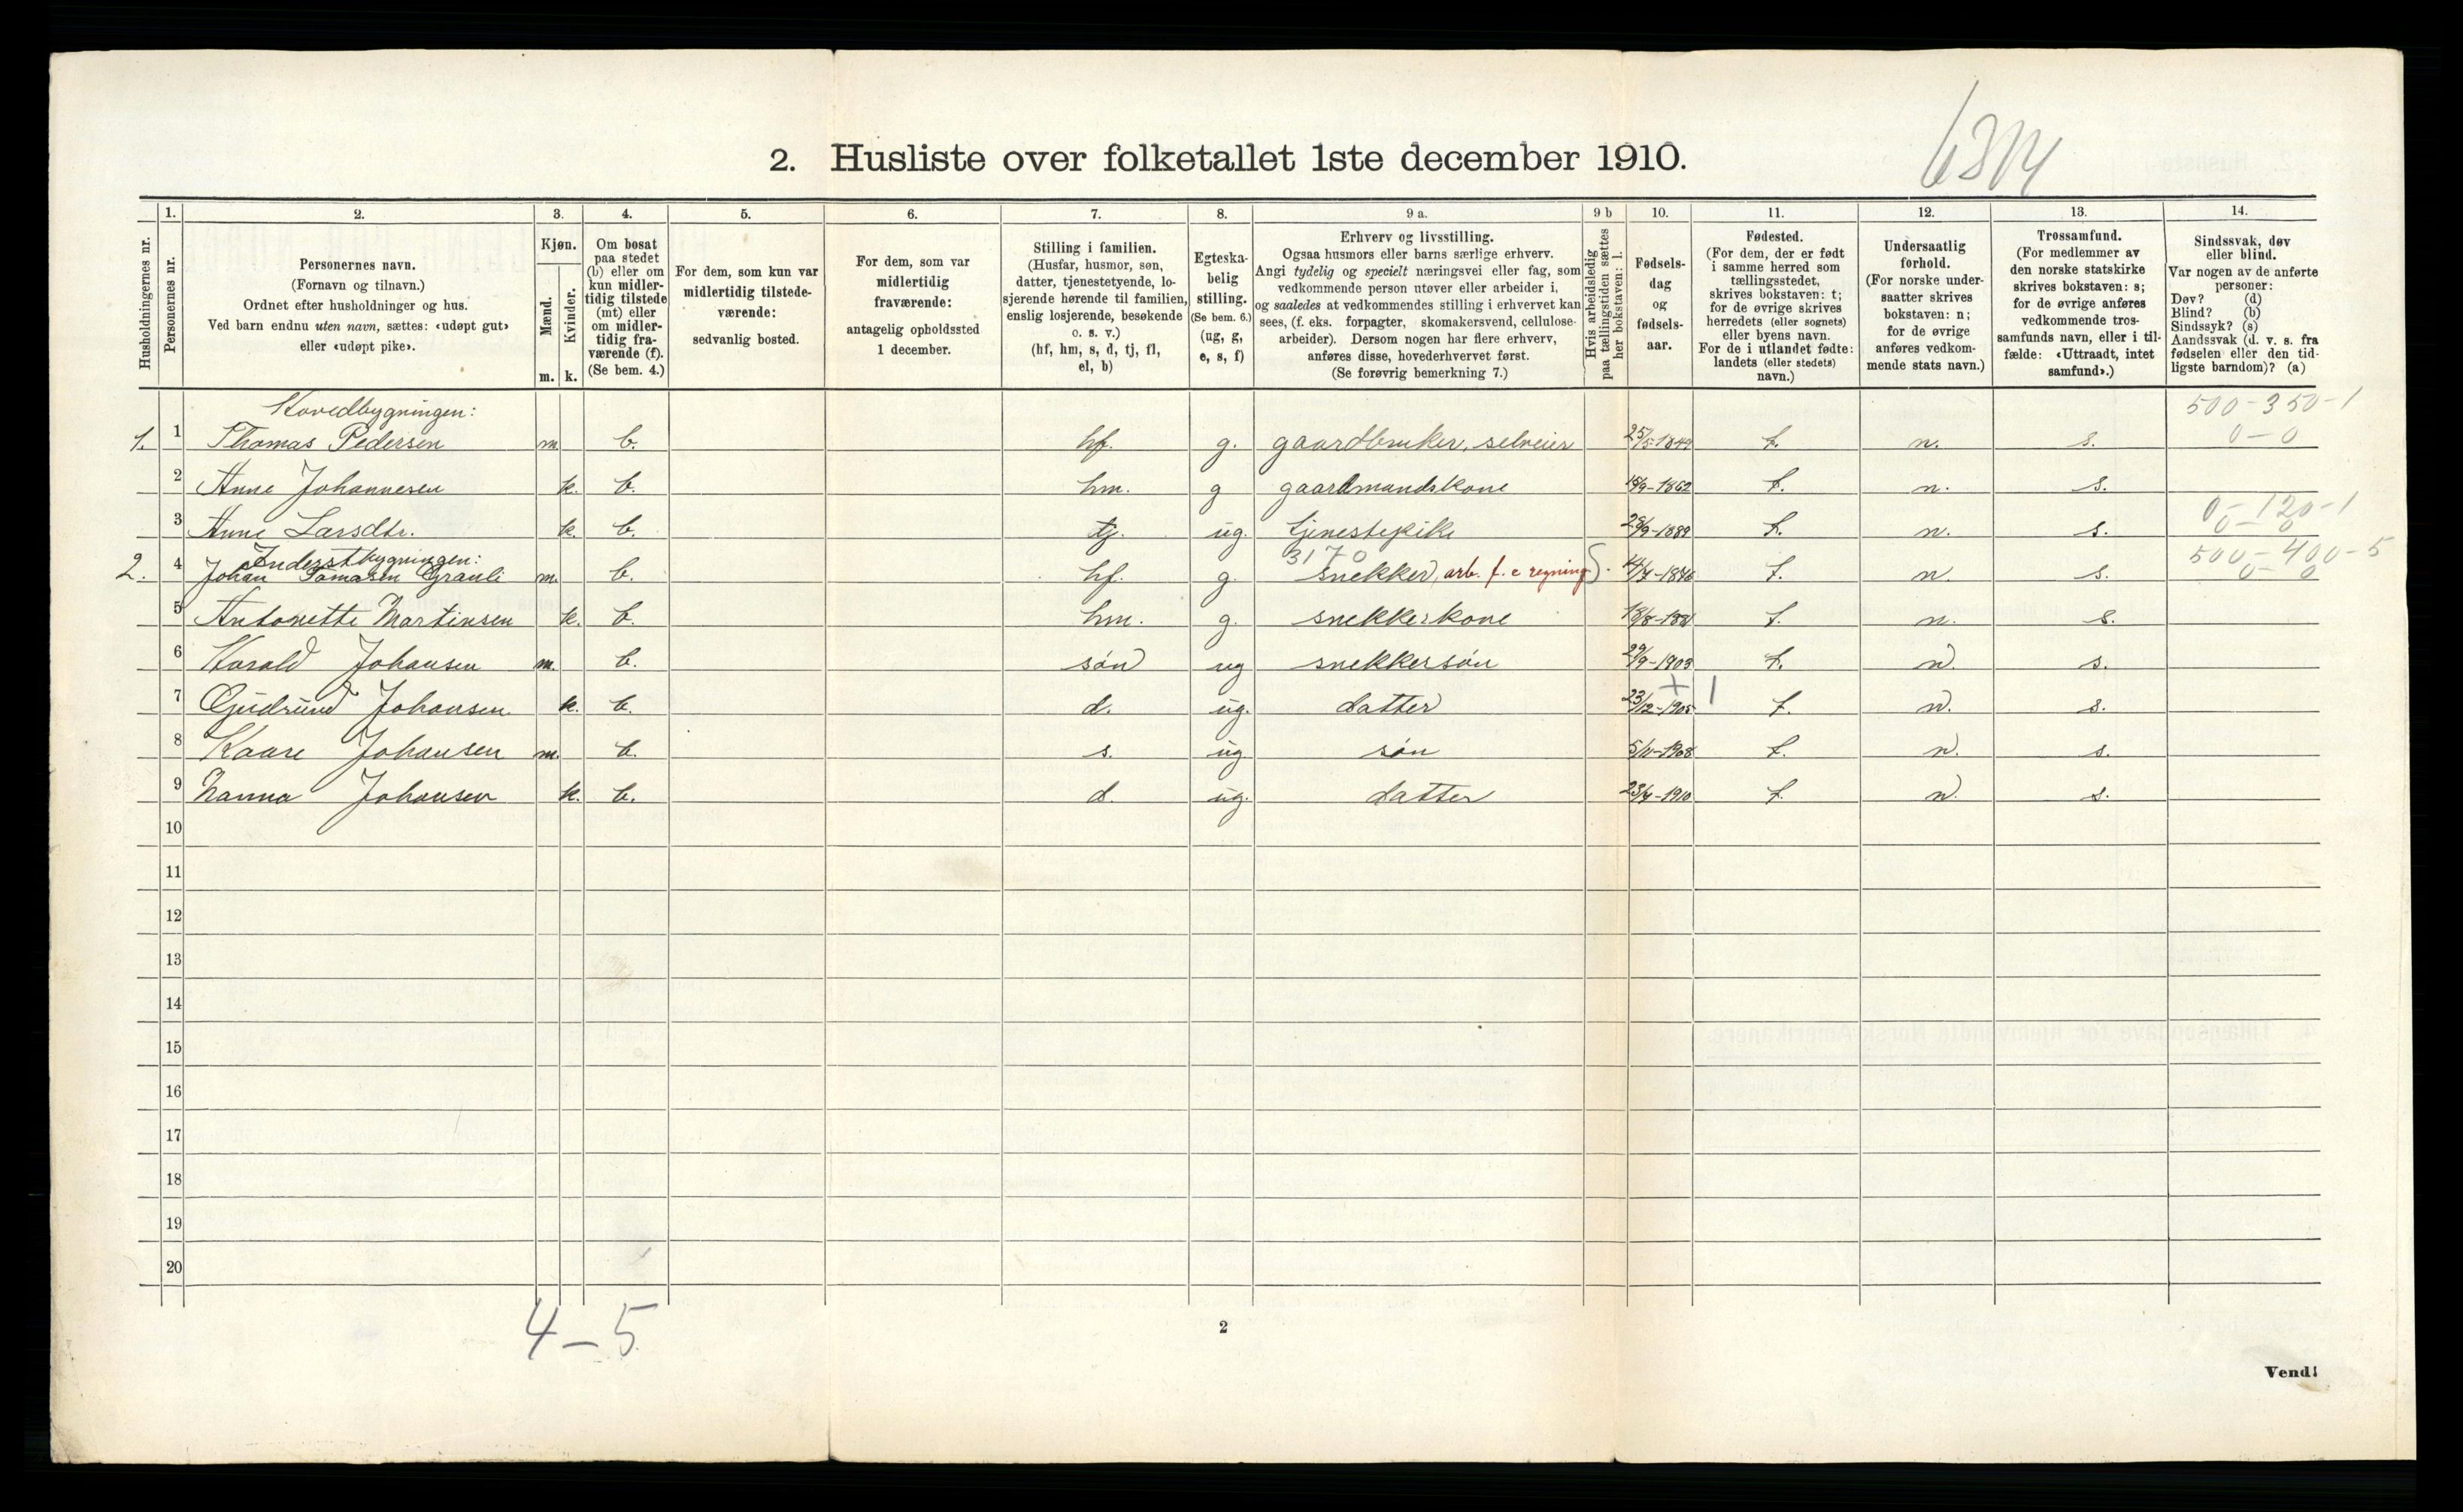 6314
2. Husliste over folketallet 1ste december 1910.
Husholdningernes nr.
1. Personernes nr.
2. Personernes navn.
(Fornavn og tilnavn.)
Ordnet efter husholdninger og hus.
Ved barn endnu uten navn, sættes: «udøpt gut»
eller «udøpt pike».
3. Kjøn.
Mænd. m.
Kvinder. k.
4. Om bosat
paa stedet
(b) eller om
kun midler-
tidig tilstede
(mt) eller
om midler-
tidig fra-
værende (f).
(Se bem. 4.)
5. For dem, som kun var
midlertidig tilstede-
værende:
sedvanlig bosted.
6. For dem, som var
midlertidig
fraværende:
antagelig opholdssted
1 december.
7. Stilling i familien.
(Husfar, husmor, søn,
datter, tjenestetyende, lo-
sjerende hørende til familien,
enslig losjerende, besøkende
o. s. v.)
(hf, hm, s, d, tj, fl,
el, b)
8. Egteska-
belig
stilling.
(Se bem. 6.)
(ug, g,
e, s, f)
9 a. Erhverv og livsstilling.
Ogsaa husmors eller barns særlige erhverv.
Angi tydelig og specielt næringsvei eller fag, som
vedkommende person utøver eller arbeider i,
og saaledes at vedkommendes stilling i erhvervet kan
sees, (f. eks. forpagter, skomakersvend, cellulose-
arbeider). Dersom nogen har flere erhverv,
anføres disse, hovederhvervet først.
(Se forøvrig bemerkning 7.)
9 b Hvis arbeidsledig
paa tællingstiden sættes
her bokstaven: l.
10. Fødsels-
dag
og
fødsels-
aar.
11. Fødested.
(For dem, der er født
i samme herred som
tællingsstedet,
skrives bokstaven: t;
for de øvrige skrives
herredets (eller sognets)
eller byens navn.
For de i utlandet fødte:
landets (eller stedets)
navn.)
12. Undersaatlig
forhold.
(For norske under-
saatter skrives
bokstaven: n;
for de øvrige
anføres vedkom-
mende stats navn.)
13. Trossamfund.
(For medlemmer av
den norske statskirke
skrives bokstaven: s;
for de øvrige anføres
vedkommende tros-
samfunds navn, eller i til-
fælde: «Uttraadt, intet
samfund».)
14. Sindssvak, døv
eller blind.
Var nogen av de anførte
personer:
Døv? (d)
Blind? (b)
Sindssyk? (s)
Aandssvak (d. v. s. fra
fødselen eller den tid-
ligste barndom)? (a)
Hovedbygningen: 500-350-1
1. 1 Thomas Pedersen m. b. hf. g. gaardbruker, selveier t. n. s. 0-0
2 Anne Johannesen k. b. hm. g gaardmandskone 15/9-1862 t. n. s.
0-120-1
3 Anne Larsdtr. k. b. tj. ug. tjenestepike 28/9-1889 t. n. s. 0-0
Inderstbygningen: 3170 500-400-5
2. 4 Johan Tomasen Granli m. b. hf. g. snekker, arb. f. e regning t. n. s. 0-0
5 Antonette Martinsen k. b. hm. g. snekkerkone t. n. s.
6 Harald Johansen m. b. søn ug snekkersøn 29/9-1903 t. n. s.
7 Gudrund Johansen k. b. d. ug. datter 23/12-1905 t. n. s.
8 Kaare Johansen m. b. s. ug søn 5/11-1908 t. n. s.
9 Nanna Johansen k. b. d. ug. datter 23/4-1910 t. n. s.
10
11
12
13
14
15
16
17
18
19
20
4-5
2
Vend!